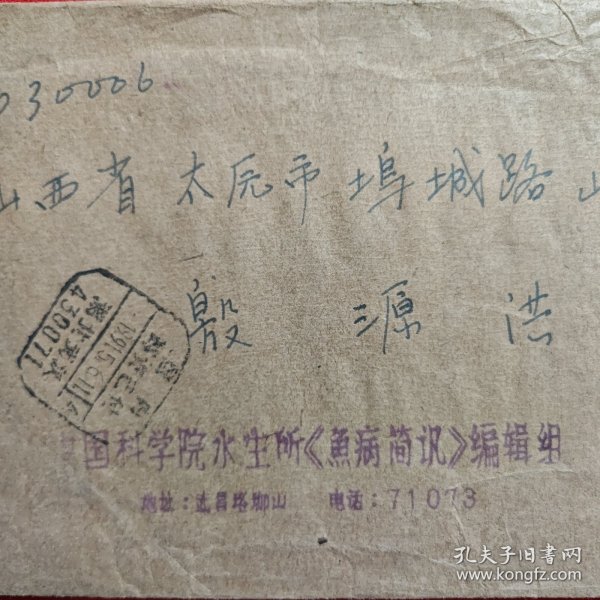 030006
山西省太原市埠城路山
殷源洪
国内
邮资已付
1991.5.6.11
湖北武汉
430071
中国科学院水生所《魚病简讯》编辑组
地址:武昌珞珈山 电话:71073
孔夫子旧书网
www.kongfz.com